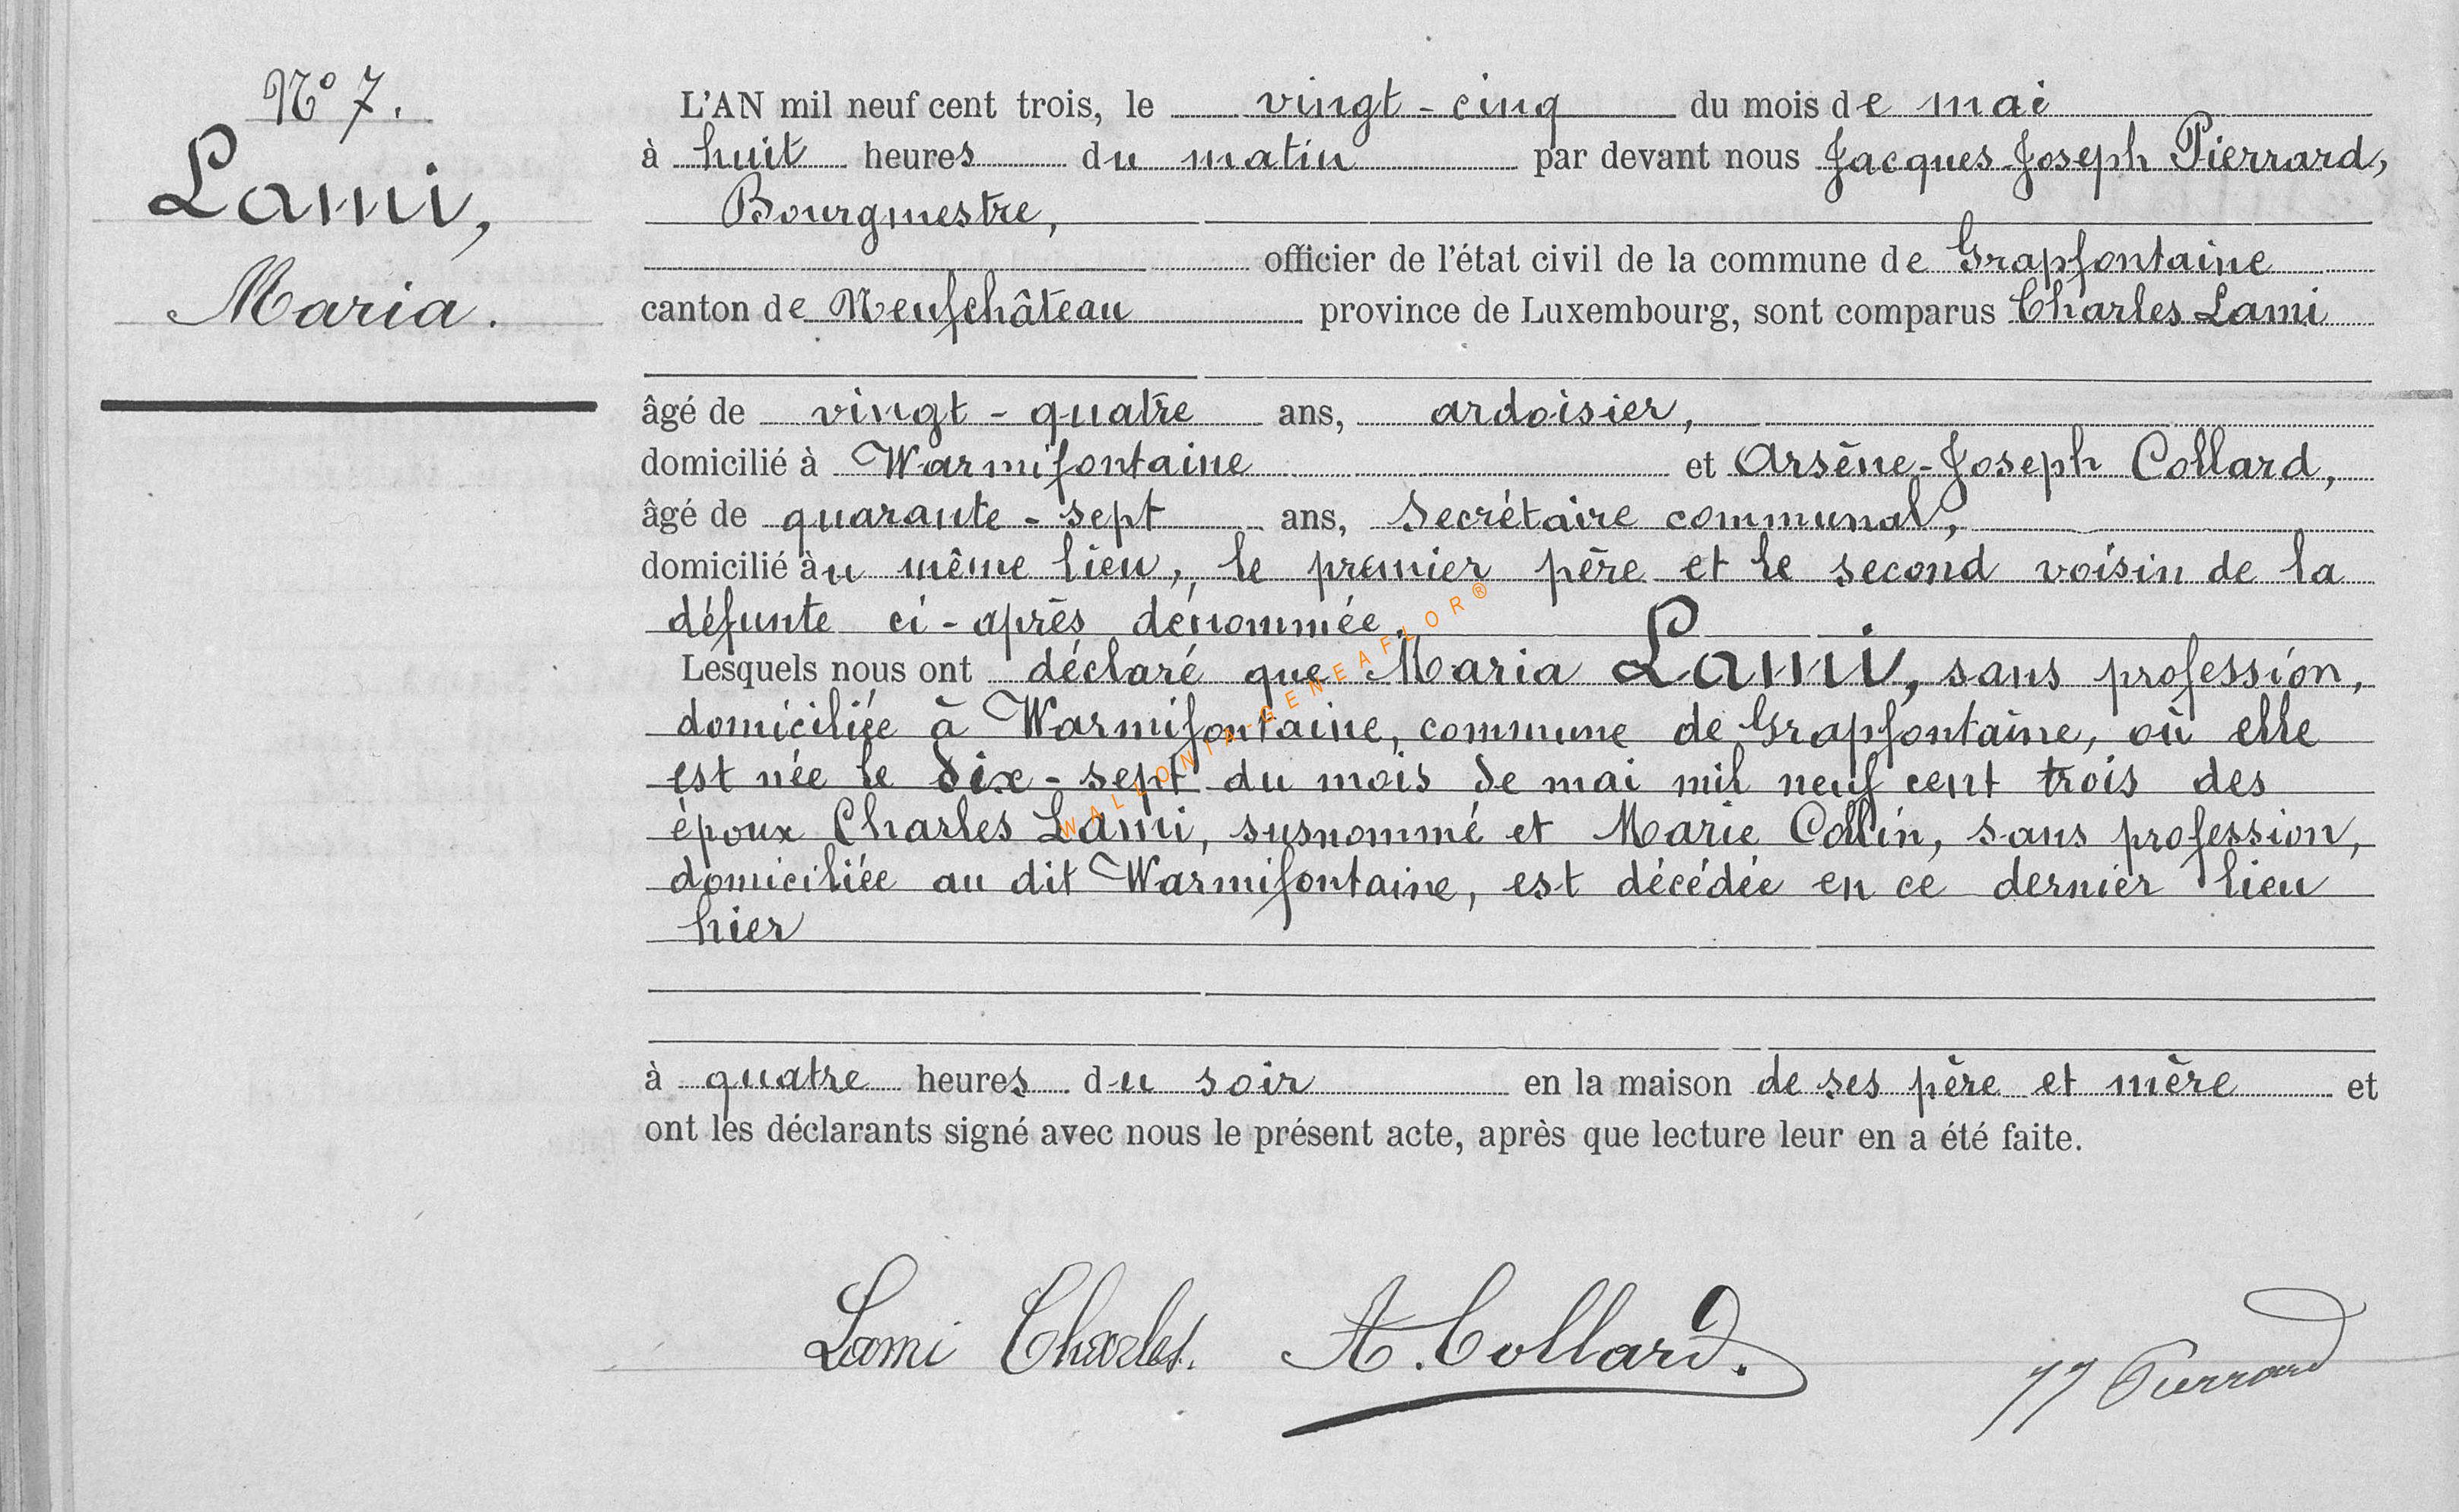 N° 7.
Lami,
Maria.
L'AN mil neuf cent trois, le vingt-cinq du mois de mai
à huit heures du matin par devant nous Jacques-Joseph Pierrard,
Bourgmestre,
officier de l'état civil de la commune de Grapfontaine
canton de Neufchâteau province de Luxembourg, sont comparus Charles Lami
âgé de vingt-quatre ans, ardoisier,
domicilié à Warmifontaine et Arsène-Joseph Collard,
âgé de quarante-sept ans, Secrétaire communal,
domicilié àu même lieu, le premier père et le second voisin de la
défunte ci-après dénommée.
Lesquels nous ont déclaré que Maria Lami, sans profession,
domiciliée à Warmifontaine, commune de Grapfontaine, où elle
est née le dix-sept du mois de mai mil neuf cent trois des
époux Charles Lami, susnommé et Marie Collin, sans profession,
domiciliée au dit Warmifontaine, est décédée en ce dernier lieu
hier
à quatre heures du soir en la maison de ses père et mère et
ont les déclarants signé avec nous le présent acte, après que lecture leur en a été faite.
Lami Charles. A. Collard. JJ Pierrard
WALLONIA-GENEAFLOR®